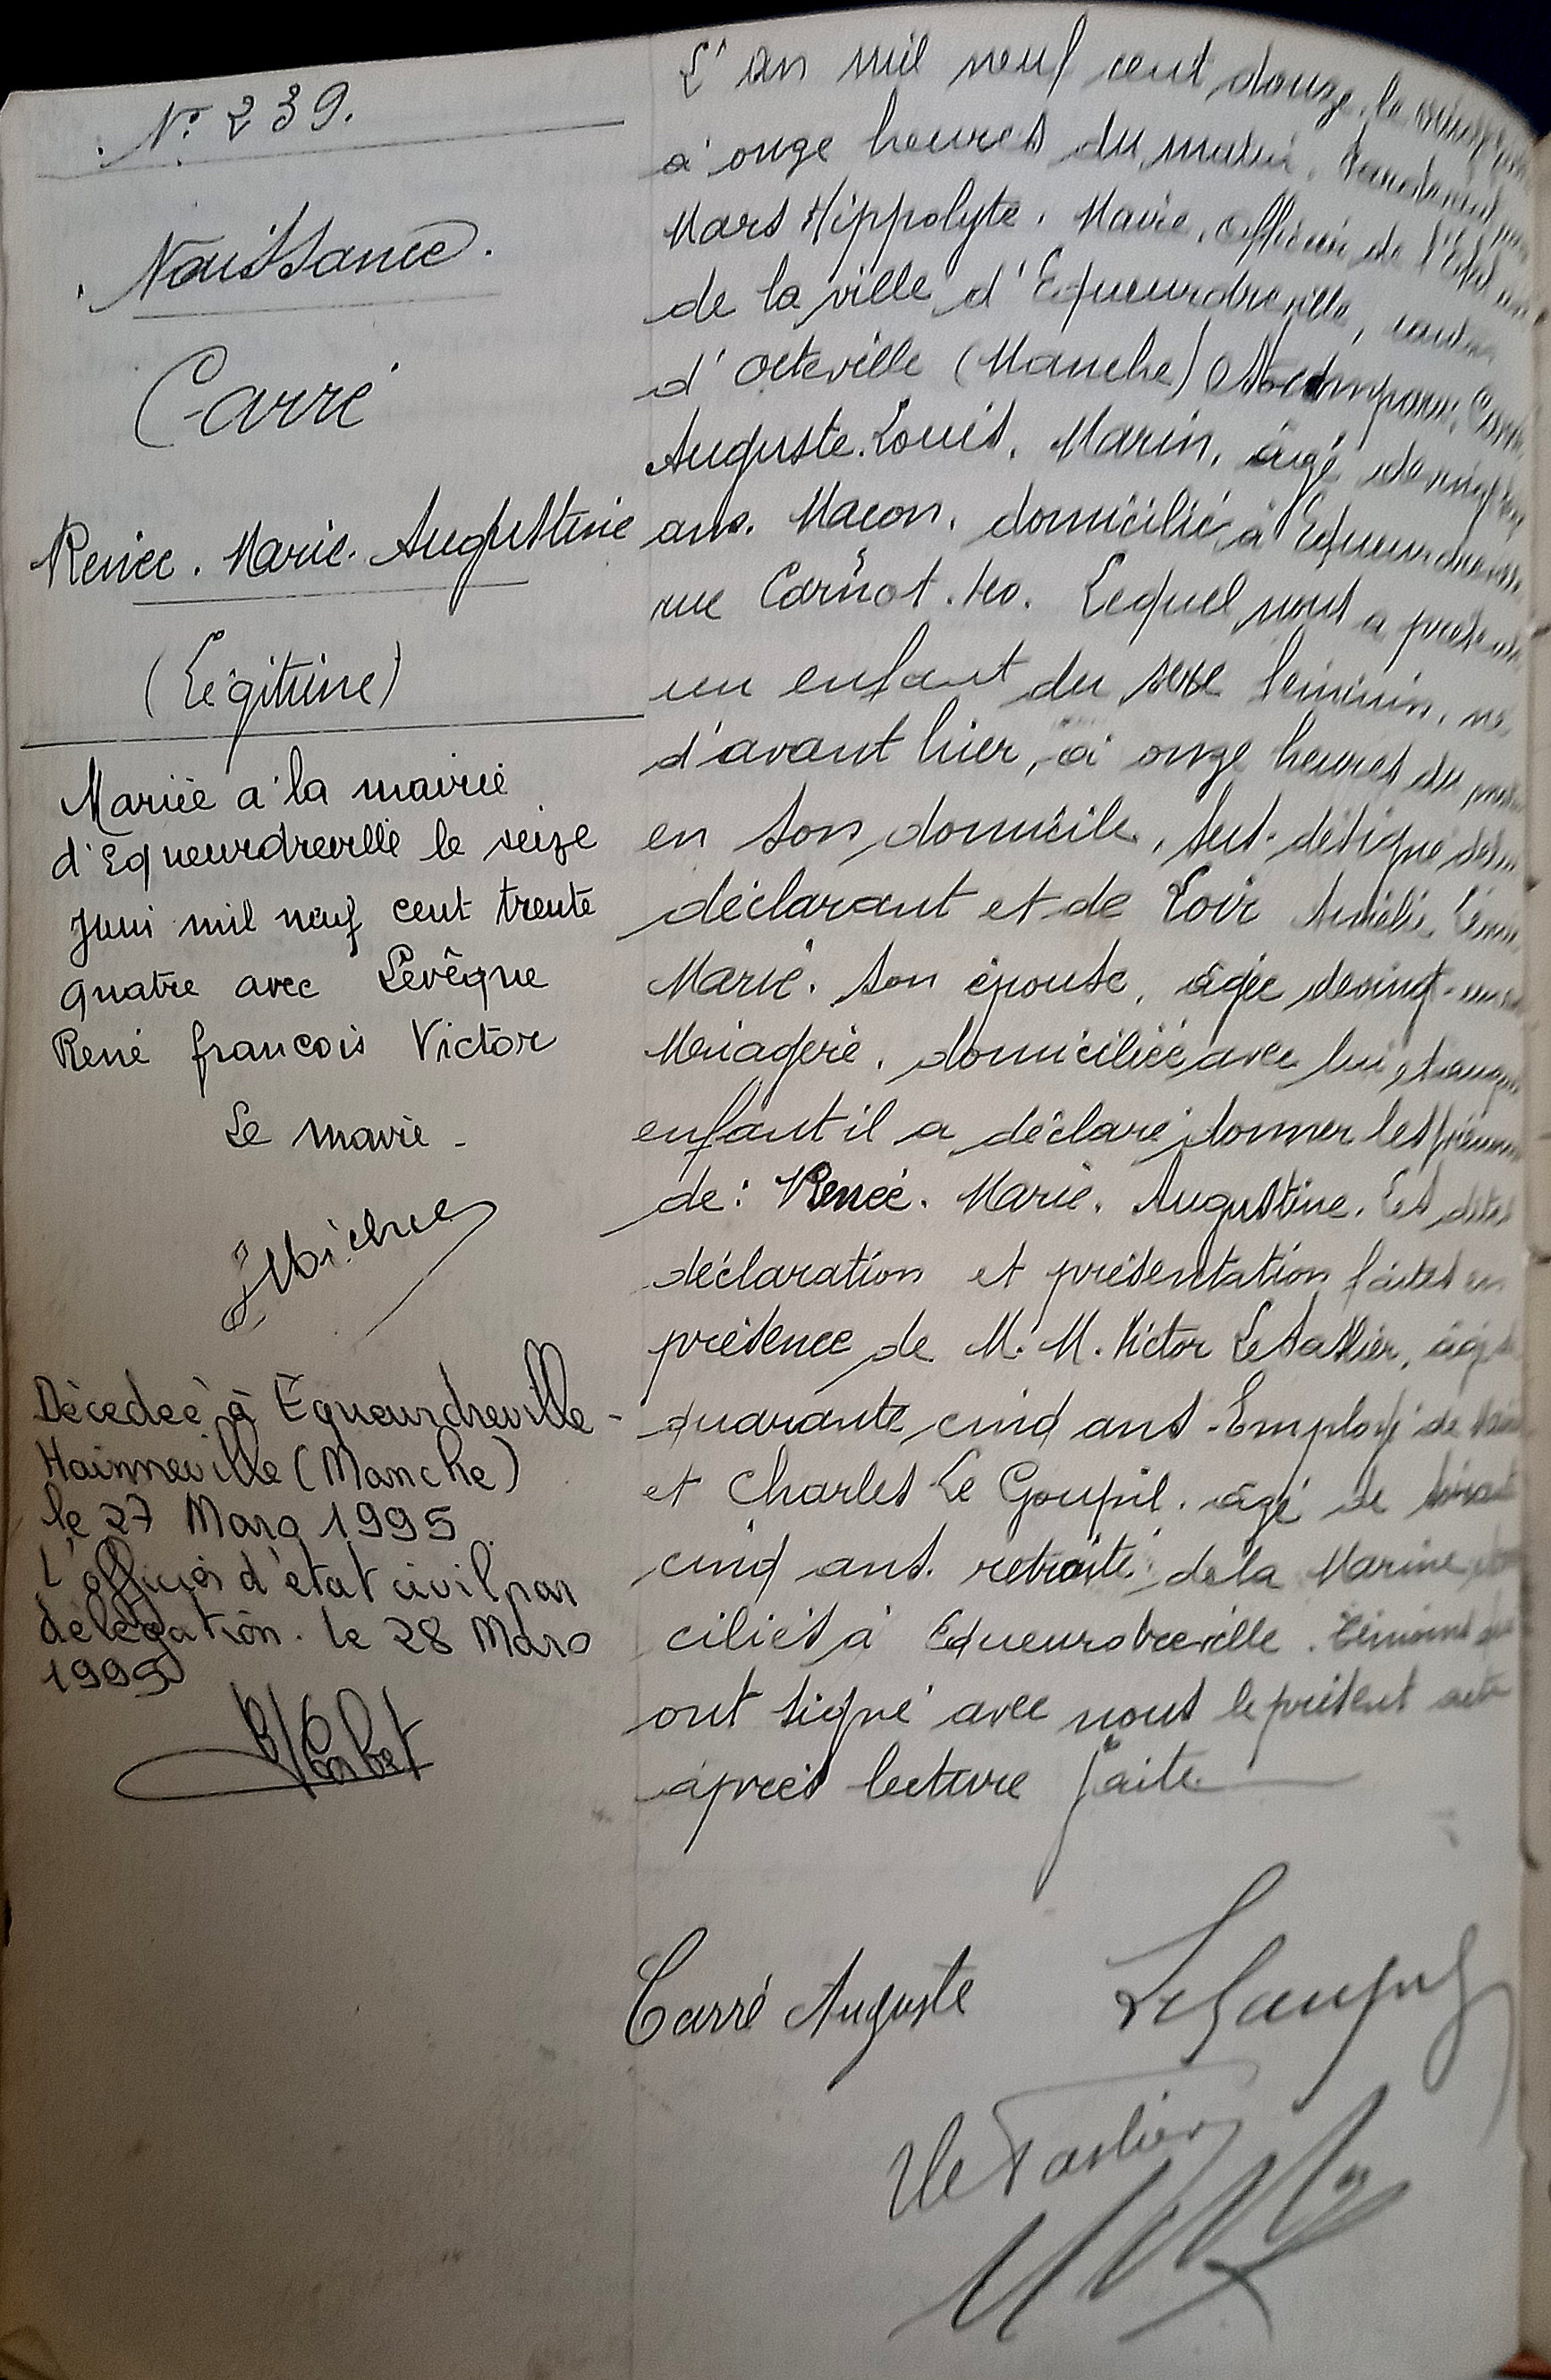 N° 239.
Naissance.
Carré
Renée. Marie. Augustine
(Légitime)
Mariée à la mairie
d'Equeurdreville le seize
juin mil neuf cent trente
quatre avec Levêque
René françois Victor
Le maire -
Décédée à Equeurdreville-
Hainneville (Manche)
le 27 Mars 1995
L'officier d'état civil par
délégation. le 28 Mars
1995
L'an mil neuf cent douze, le
à onze heures du matin,
Mars Hippolyte. Maire, Officier de l'Etat
de la ville d'Equeurdreville, canton
d'Octeville (Manche) comparu, Carré
Auguste. Louis. Marin, âgé de
ans. Maçon. domicilié à Equeurdreville
rue Carnot. 110. Lequel nous a présenté
un enfant du sexe féminin, né
d'avant hier, à onze heures du
en son domicile, sus-désigné de
déclarant et de Loir Amélie
Marie. son épouse, âgée de vingt-
Ménagère, domiciliée avec lui, et auquel
enfant il a déclaré donner les prénoms
de: Renée. Marie. Augustine. Les dites
déclaration et présentation faites en
présence de M. M. Victor Le Taslier, âgé
quarante cinq ans. Employé de
et Charles Le Goupil. âgé de
cinq ans. retraité de la Marine,
ciliés à Equeurdreville. témoins
ont signé avec nous le présent acte
après lecture faite
Carré Auguste Le Goupil
V Le Taslier